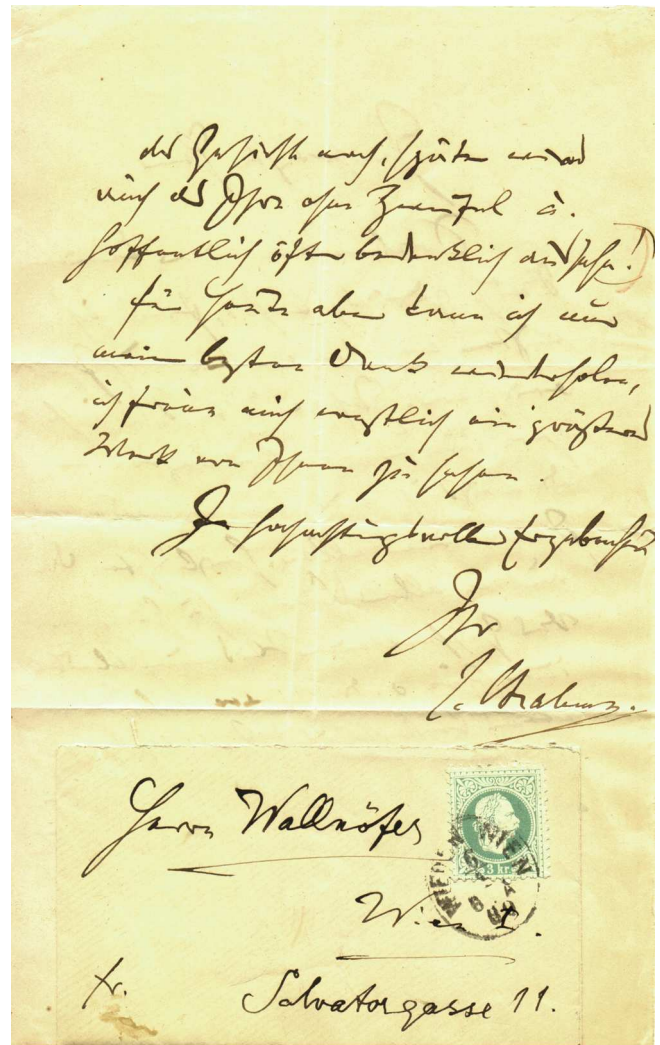 später wird
auch das Ihre ohne Zweifel u.
hoffentlich öfter bedenklich aussehn!
für heute aber kann ich nur
meinen besten Dank wiederholen,
ich freue mich ernstlich ein größeres
Werk von Ihnen zu sehen.
In hochachtungsvoller Ergebenheit
Ihr
J. Brahms.
Herrn Wallnöfer
3 kr.
WIEDEN WIEN
Wien I.
fr. Salvatorgasse 11.